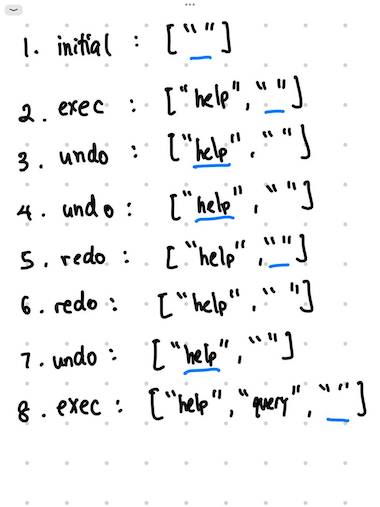 1. initial : [""]
2. exec : ["help", ""]
3. undo : ["help", ""]
4. undo : ["help", ""]
5. redo : ["help", ""]
6. redo : ["help", ""]
7. undo : ["help", ""]
8. exec : ["help", "query", ""]